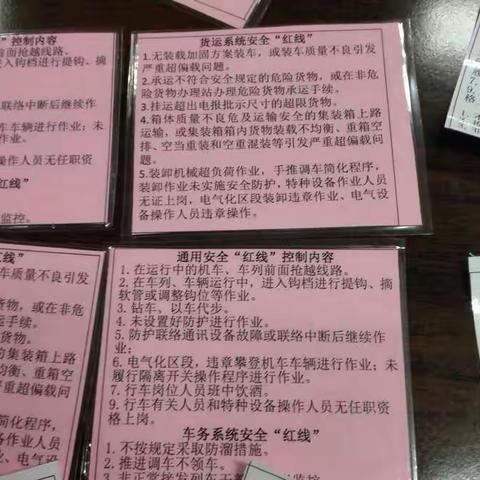 货运系统安全“红线”
1.无装载加固方案装车，或装车质量不良引发
严重超偏载问题。
2.承运不符合安全规定的危险货物，或在非危
险货物办理站办理危险货物承运手续。
3.挂运超出电报批示尺寸的超限货物。
4.箱体质量不良危及运输安全的集装箱上路
运输，或集装箱箱内货物装载不均衡、重箱空
排、空当重装和空重混装等引发严重超偏载问
题。
5.装卸机械超负荷作业，手推调车简化程序，
装卸作业未实施安全防护，特种设备作业人员
无证上岗，电气化区段装卸违章作业、电气设
备操作人员违章操作。
通用安全“红线”控制内容
1. 在运行中的机车、车列前面抢越线路。
2. 在车列、车辆运行中，进入钩档进行提钩、摘
软管或调整钩位等作业。
3. 钻车、以车代步。
4. 未设置好防护进行作业。
5. 防护联络通讯设备故障或联络中断后继续作
业；
6. 电气化区段，违章攀登机车车辆进行作业；未
履行隔离开关操作程序进行作业。
7. 行车岗位人员班中饮酒。
9. 行车有关人员和特种设备操作人员无任职资
格上岗。
车务系统安全“红线”
1. 不按规定采取防溜措施。
2. 推进调车不领车。
3. 非正常接发列车
”控制内容
前面抢越线路。
入钩档进行提钩、摘
联络中断后继续作
车车辆进行作业；未
作业。
操作人员无任职资
红线”
监控。
红线”
车质量不良引发
货物，或在非危
手续。
货物。
的集装箱上路
均衡、重箱空
严重超偏载问
简化程序，
作业人员
业、电气设